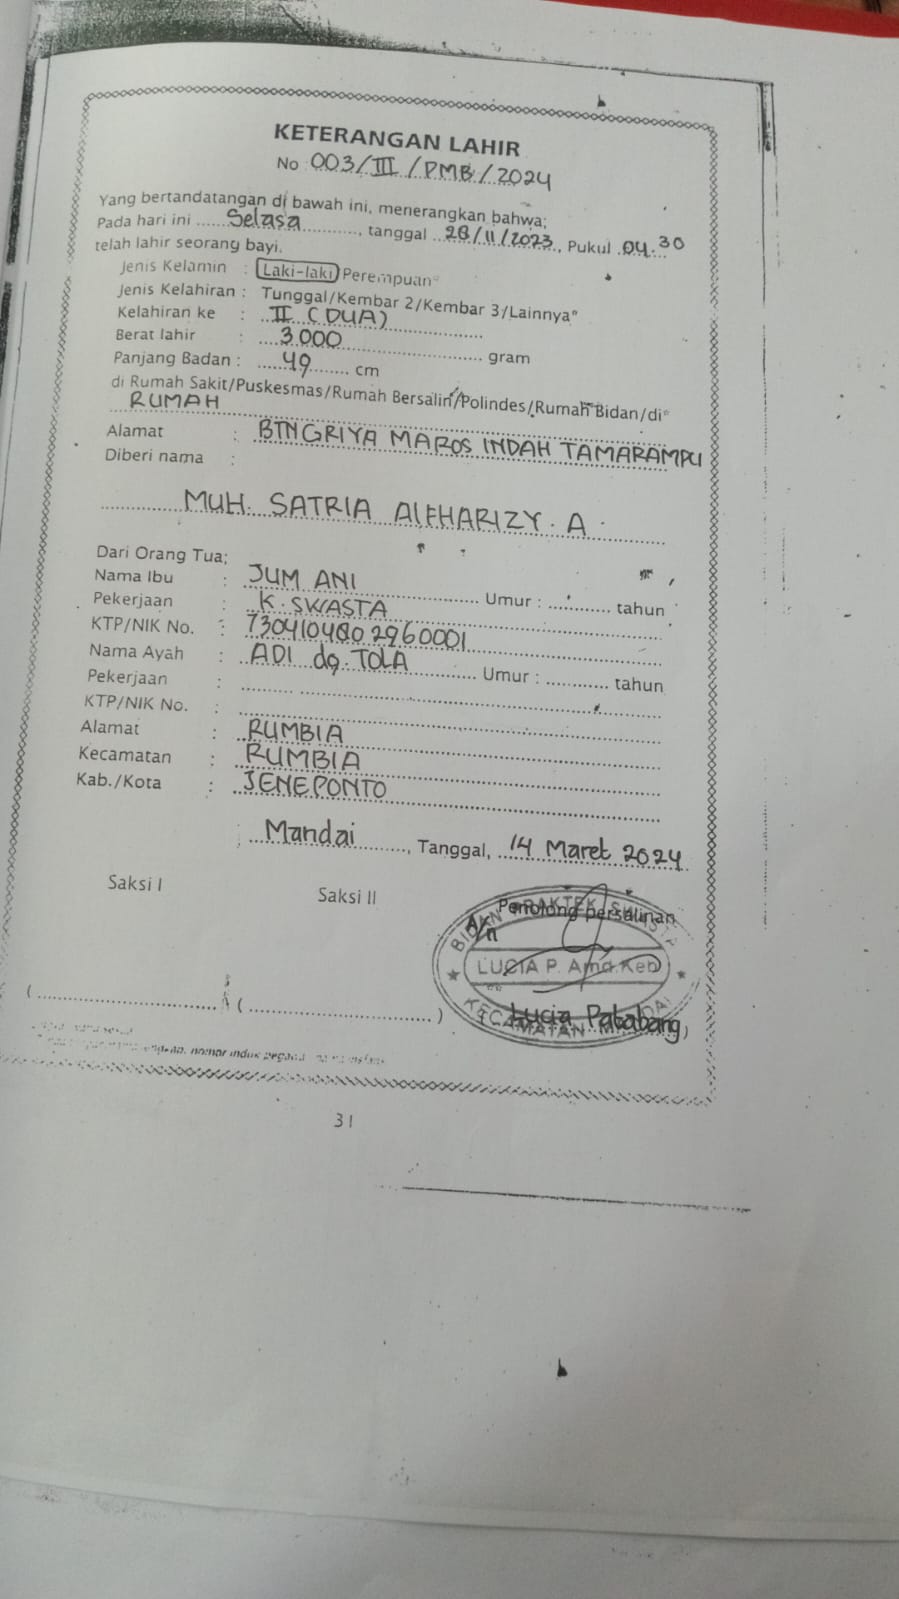 KETERANGAN LAHIR
No 003/III/PMB/2024
Yang bertandatangan di bawah ini, menerangkan bahwa;
Pada hari ini Selasa, tanggal 28/11/2023, Pukul 04.30
telah lahir seorang bayi.
Jenis Kelamin : Laki-laki/Perempuan*
Jenis Kelahiran : Tunggal/Kembar 2/Kembar 3/Lainnya*
Kelahiran ke : II (DUA)
Berat lahir : 3.000 gram
Panjang Badan : 49 cm
di Rumah Sakit/Puskesmas/Rumah Bersalin/Polindes/Rumah Bidan/di*
RUMAH
Alamat : BTN GRIYA MAROS INDAH TAMARAMPU
Diberi nama :
MUH. SATRIA AlFHARIZY. A.
Dari Orang Tua;
Nama Ibu : JUM ANI Umur : tahun
Pekerjaan : K. SWASTA
KTP/NIK No. : 7304104802960001
Nama Ayah : ADI dg. TOLA Umur : tahun
Pekerjaan :
KTP/NIK No. :
Alamat : RUMBIA
Kecamatan : RUMBIA
Kab./Kota : JENEPONTO
Mandai, Tanggal, 14 Maret 2024
Saksi I Saksi II Penolong persalinan
A/n
BIDAN PRAKTEK SWASTA
LUCIA P. Amd.Keb
KECAMATAN MANDAI
( ) ( ) ( Lucia Patabang )
31